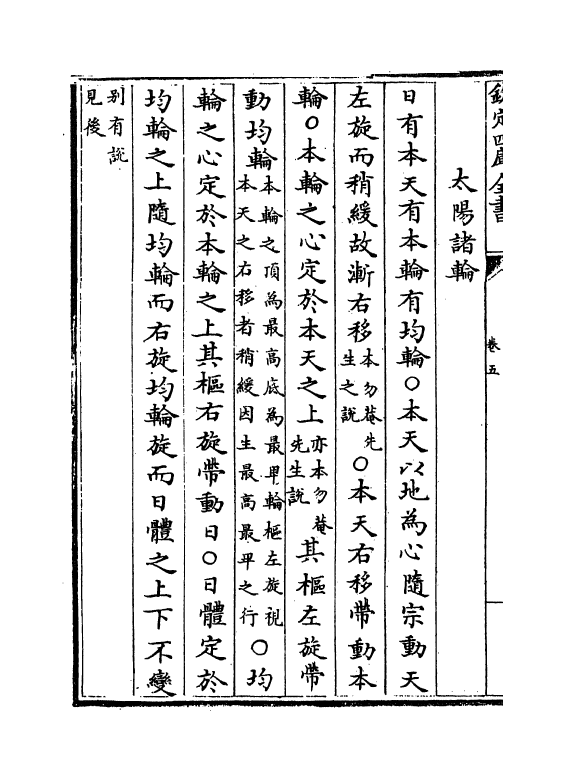 欽定四庫全書
卷五
太陽諸輪
日有本天有本輪有均輪○本天以地為心隨宗動天
左旋而稍緩故漸右移本勿菴先生之說○本天右移帶動本
輪○本輪之心定於本天之上亦本勿菴先生說其樞左旋帶
動均輪本輪之頂為最高底為最卑輪樞左旋視本天之右移者稍緩因生最高最卑之行○均
輪之心定於本輪之上其樞右旋帶動日○日體定於
均輪之上隨均輪而右旋均輪旋而日體之上下不變
別有說見後